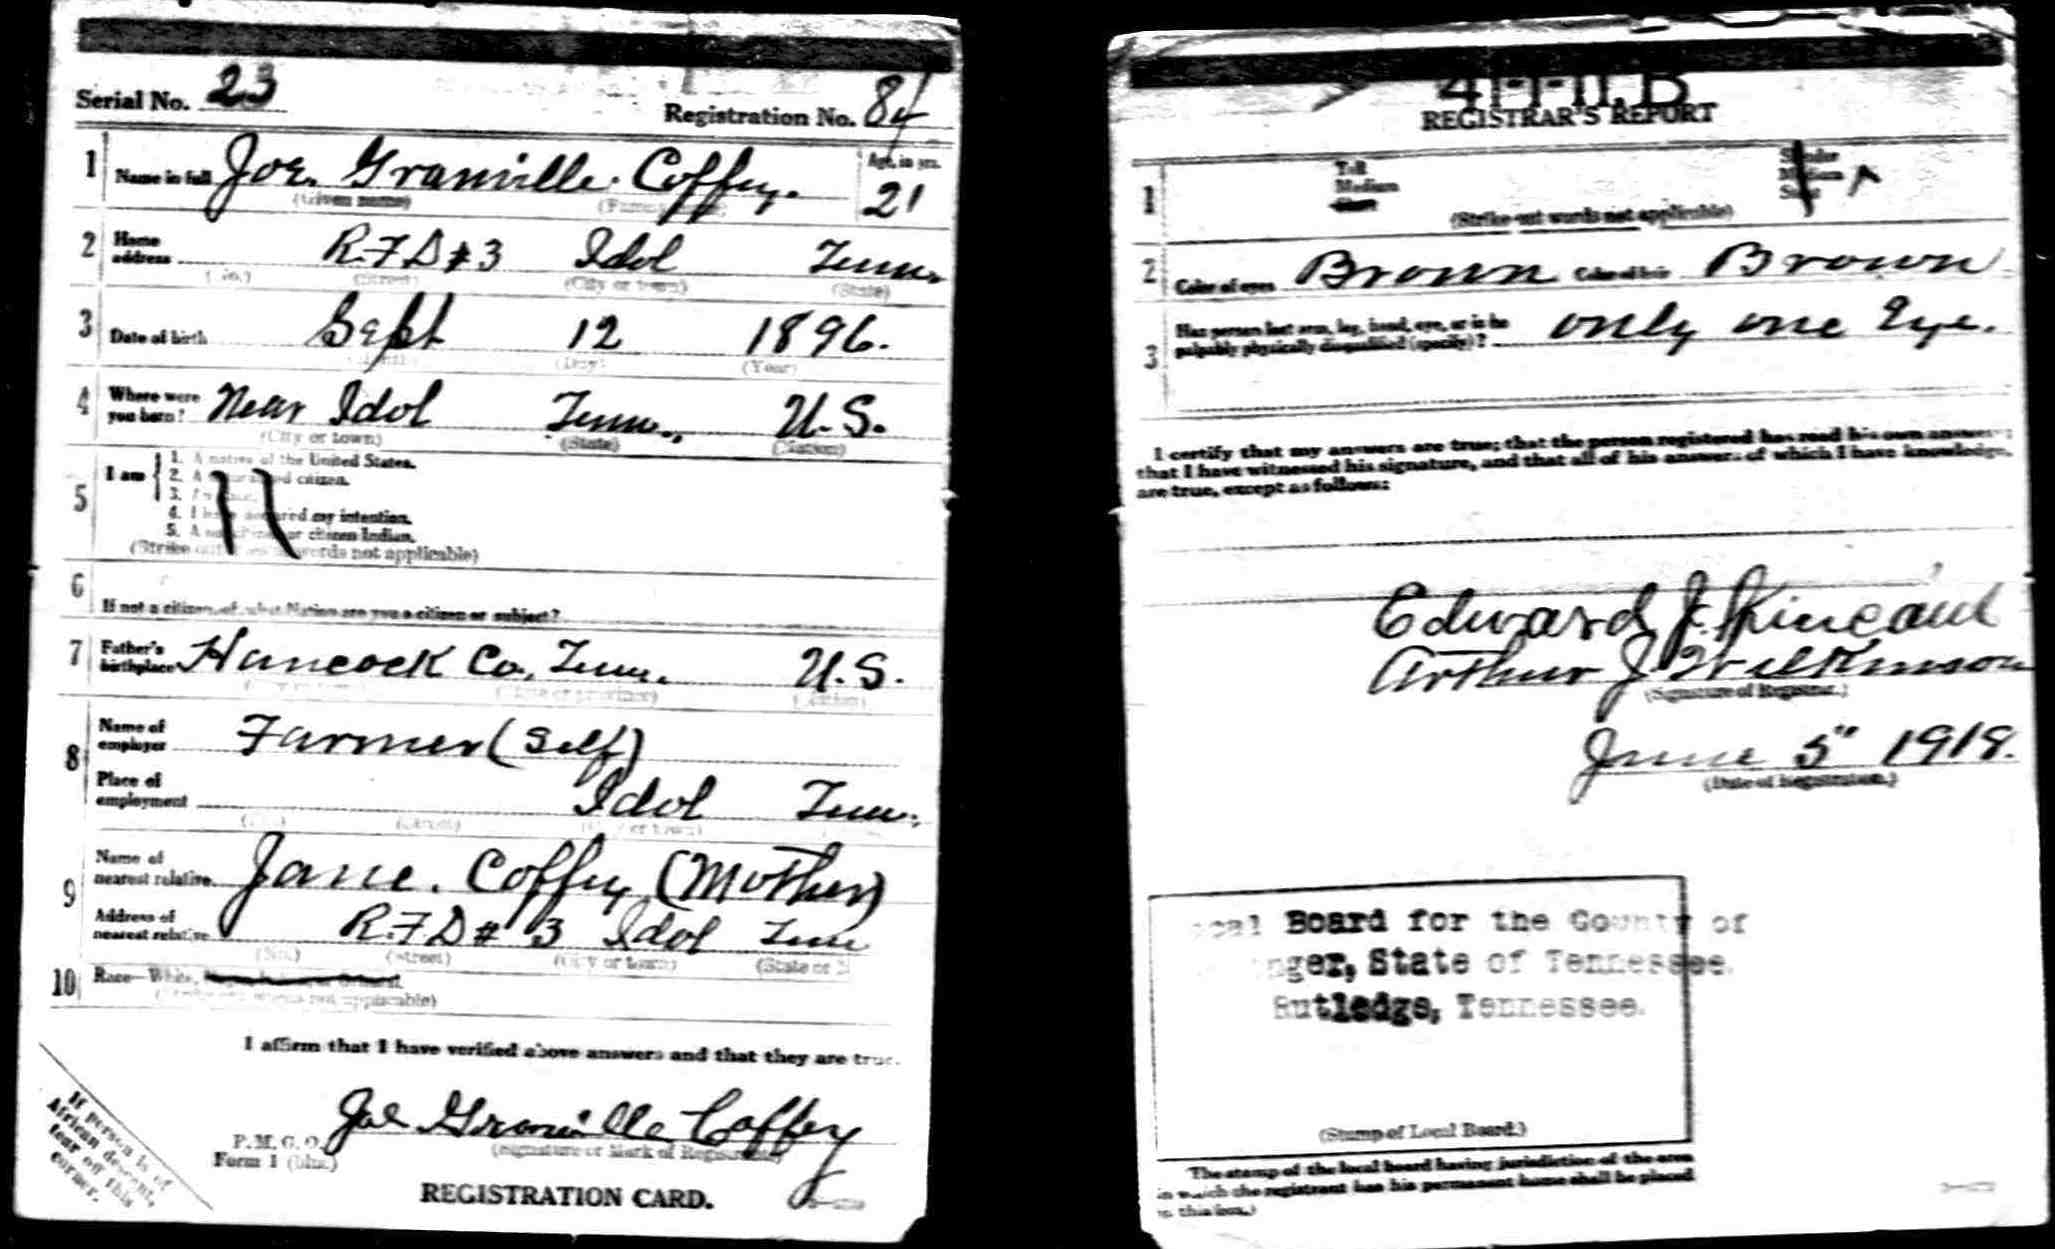 Serial No. 23
Registration No. 84
1 Name in full Joe. Granville. Coffey.
Age, in yrs. 21
(Given name)
2 Home address R.F.D #3 Idol Tenn.
(Street) (City or town) (State)
3 Date of birth Sept 12 1896.
(Day) (Year)
4 Where were you born? Near Idol Tenn., U.S.
(City or town) (State) (Nation)
5 I am
1. A native of the United States.
2. A citizen.
3.
4. I my intention.
5. A or citizen Indian.
(Strike words not applicable)
6
If not a citizen, of what Nation are you a citizen or subject?
7 Father's birthplace Hancock Co. Tenn. U.S.
8 Name of employer Farmer (self)
Place of employment Idol Tenn.
9 Name of nearest relative Jane. Coffey (Mother)
Address of nearest relative R.F.D # 3 Idol Tenn
(Street) (City or town) (State or
10 Race—White,
not applicable)
I affirm that I have verified above answers and that they are true.
Joe Granville Coffey
P.M.G.O.
Form 1 (blue)
(Signature or Mark of Registrant)
REGISTRATION CARD.
If person is of
African descent,
tear off this
corner.
REGISTRAR'S REPORT
1 Tall
Medium
(Strike out words not applicable)
2 Color of eyes Brown Color of hair Brown
3 Has person lost arm, leg, hand, eye, or is he
palpably physically disqualified (specify)? only one Eye.
I certify that my answers are true; that the person registered has read his own answers;
that I have witnessed his signature, and that all of his answers of which I have knowledge
are true, except as follows:
Edward J. Kincaid
Arthur J Wilkinson
(Signature of Registrar.)
June 5" 1918.
(Date of Registration.)
Board for the County of
State of Tennessee.
Rutledge, Tennessee.
(Stamp of Local Board.)
The stamp of the local board having jurisdiction of the area
in which the registrant has his permanent home shall be placed
in this box.)